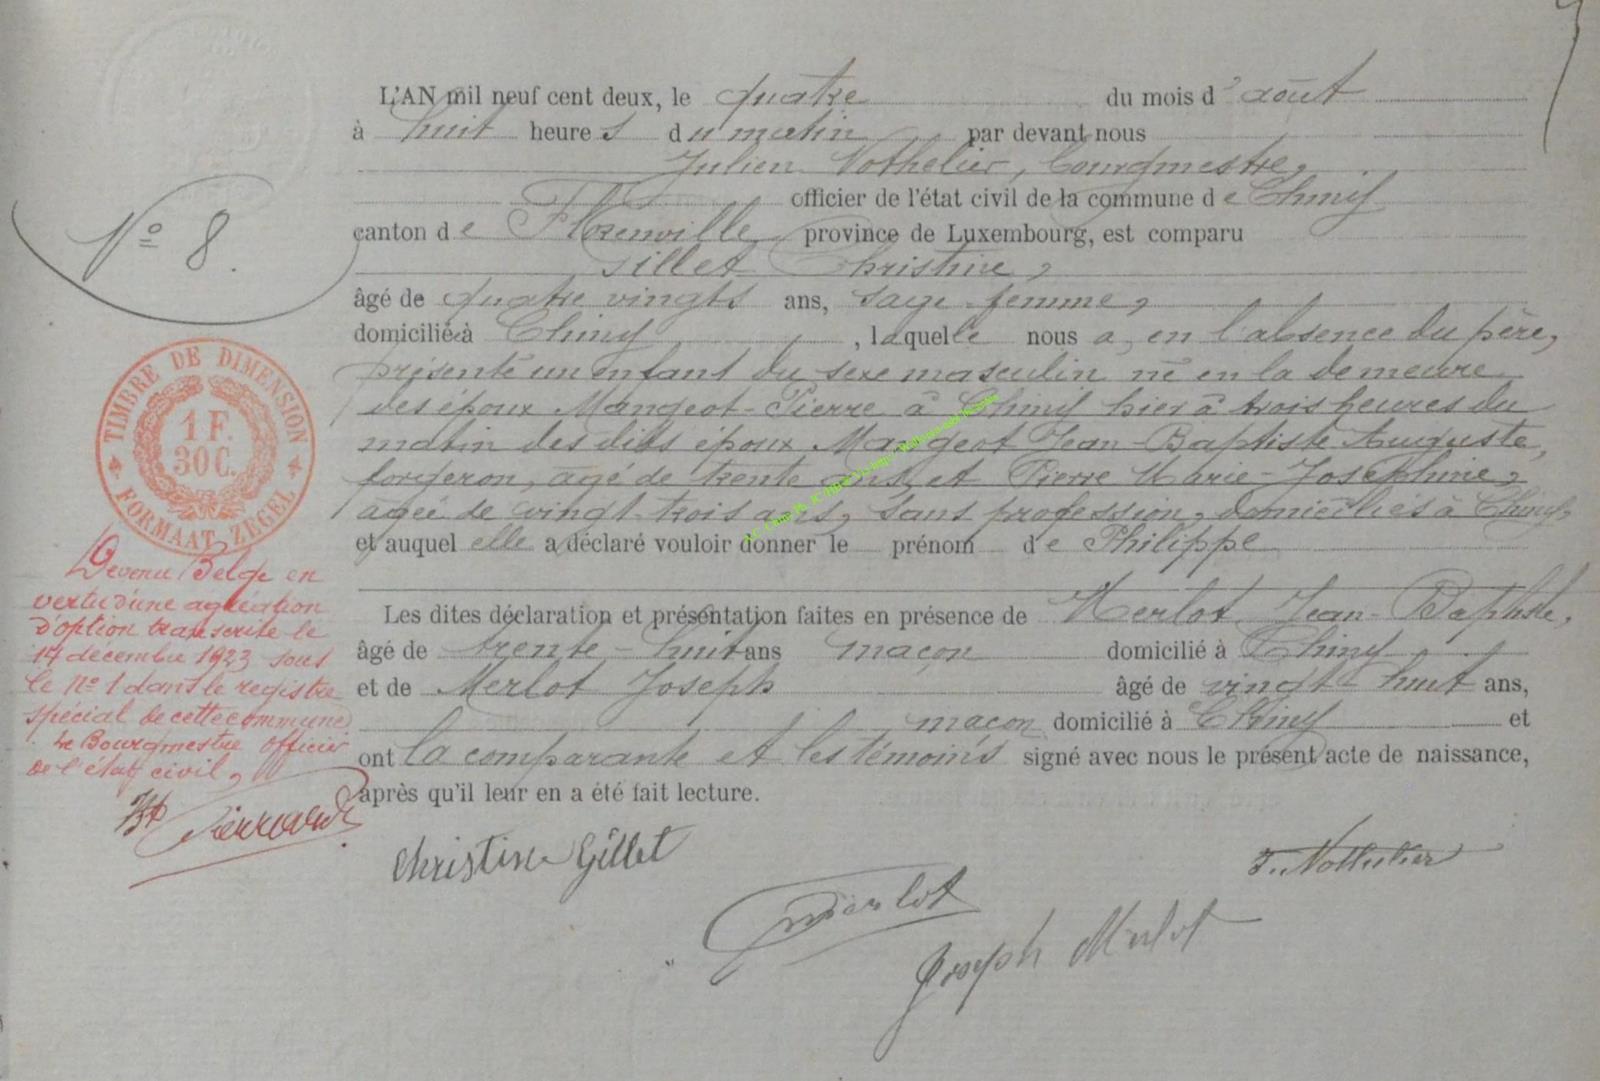 L'AN mil neuf cent deux, le quatre du mois d'août
à huit heures du matin par devant nous
Julien Nothelier, bourgmestre,
officier de l'état civil de la commune de Chiny
canton de Florenville province de Luxembourg, est comparu
Gillet Christine,
âgé de quatre vingts ans, sage-femme,
domiciliée à Chiny, laquelle nous a, en l'absence du père,
présenté un enfant du sexe masculin né en la demeure
des époux Mangeot-Pierre à Chiny hier à trois heures du
matin des dits époux Mangeot Jean-Baptiste Auguste,
forgeron, âgé de trente ans, et Pierre Marie-Joséphine,
âgée de vingt-trois ans, sans profession, domiciliés à Chiny,
et auquel elle a déclaré vouloir donner le prénom de Philippe
Les dites déclaration et présentation faites en présence de Merlot Jean-Baptiste,
âgé de trente-huit ans maçon domicilié à Chiny
et de Merlot Joseph âgé de vingt-huit ans,
maçon domicilié à Chiny et
ont la comparante et les témoins signé avec nous le présent acte de naissance,
après qu'il leur en a été fait lecture.
Christine Gillet
J. Nothelier
Merlot
Joseph Merlot
No 8.
TIMBRE DE DIMENSION
1 F.
30 C.
FORMAAT ZEGEL
Devenu Belge en
vertu d'une agréation
d'option transcrite le
14 décembre 1923 sous
le No 1 dans le registre
spécial de cette commune
Le Bourgmestre officier
de l'état civil,
Pierrard